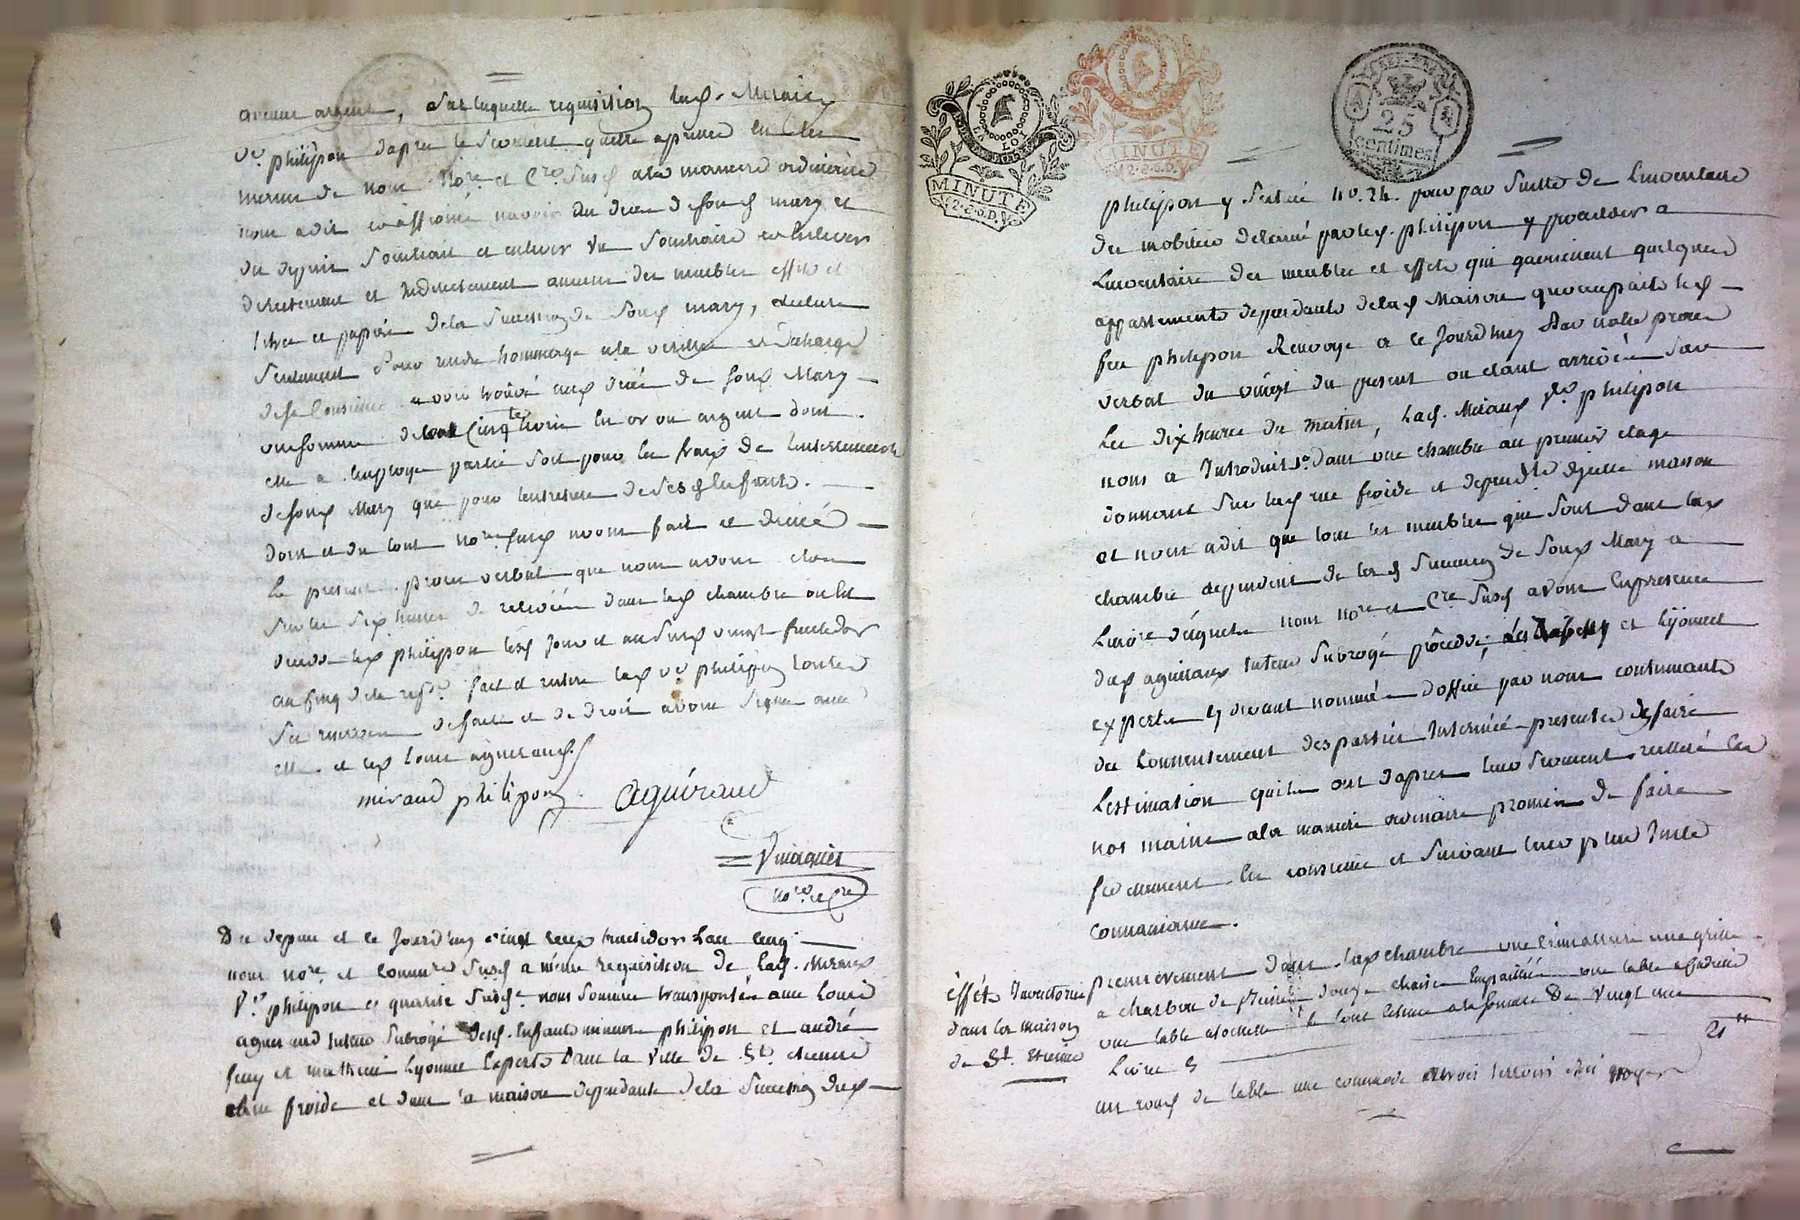 aucun argent, sur laquelle requisition lad. Miraux
Ve philipon d'apres le serment qu'elle a presté en les
mains de nous Nore et Cre susd a la maniere ordinaire
nous a dit et affirmé n'avoir du deces de son d mary et
du depuis soustrait et enlever vu soustraire et enlever
directement et indirectement aucuns des meubles effets et
titres et papiers de la succession de son d mary, declare
seulement pour rendre hommage a la verité et decharge
de sa conscience avoir trouvé aux deces de son d Mary
une somme de cinq livres en or ou argent dont
elle a employé partie soit pour les frais de l'enterrement
de son d Mary que pour l'entretien de ses d enfants.
dont et du tout nore susd avons fait et dressé
le present proces verbal que nous avons clos
sur les six heures de relevée dans lad chambre ou est
decede led philipon lesd jour et an susd vingt fructidor
an cinq de la repe. fait et entre lad ve philippon toutes
ses raisons de fait et de droit avons signé avec
elle et led Louis aguiraud
miraud philipon aguiraud
Vinaguet
nore et cre
Du depuis et ce jourd'huy vingt deux fructidor l'an cinq
nous nore et commre susd a même requisition de lad. Miraux
Ve philipon es qualité susde nous sommes transportés avec Louis
aguiraud tuteur subrogé desd. enfants mineurs philipon et andré
et mathieu Lyonnet experts dans la ville de St. etienne
rue froide et dans la maison dependante de la succession dud
LA LOI
MINUTE
LA LOI
MINUTE
25
centimes
philipon y située No. 24. pour par suitte de l'inventaire
du mobilier delaissé par led. philipon y proceder a
L'inventaire des meubles et effets qui garnissent quelques
appartements dependants de lad Maison qu'occupait led
feu philipon Renvoyé a ce jourd'huy par notre proces
verbal du vingt du present ou etant arrivés sur
les dix heures du matin, Lad. Miraux Ve philipon
nous a introduits dans une chambre au premier etage
donnant sur lad rue froide et dependte d'icelle maison
et nous a dit que tous les meubles qui sont dans lad
chambre dependent de lad succession de son d Mary a
nous nore et Cre susd avons en presence
dud aguiraux tuteur subrogé procedé, et Lyonnet
experts cy devant nommés d'office par nous continuants
du consentement des parties interessées presentes de faire
L'estimation qu'ils ont d'apres leur serment reiteré en
nos mains a la maniere ordinaire promis de faire
en conscience et suivant leur plus juste
connaissance.
effets Inventoriés
dans la maison
de St. Etienne
premierement dans lad chambre une cremailliere une grille
a charbon de pierre douze chaises empaillées une table
une table le tout estimé a la somme de vingt une
Livres 21"
un rond de table une commode a trois terroirs bois noyer